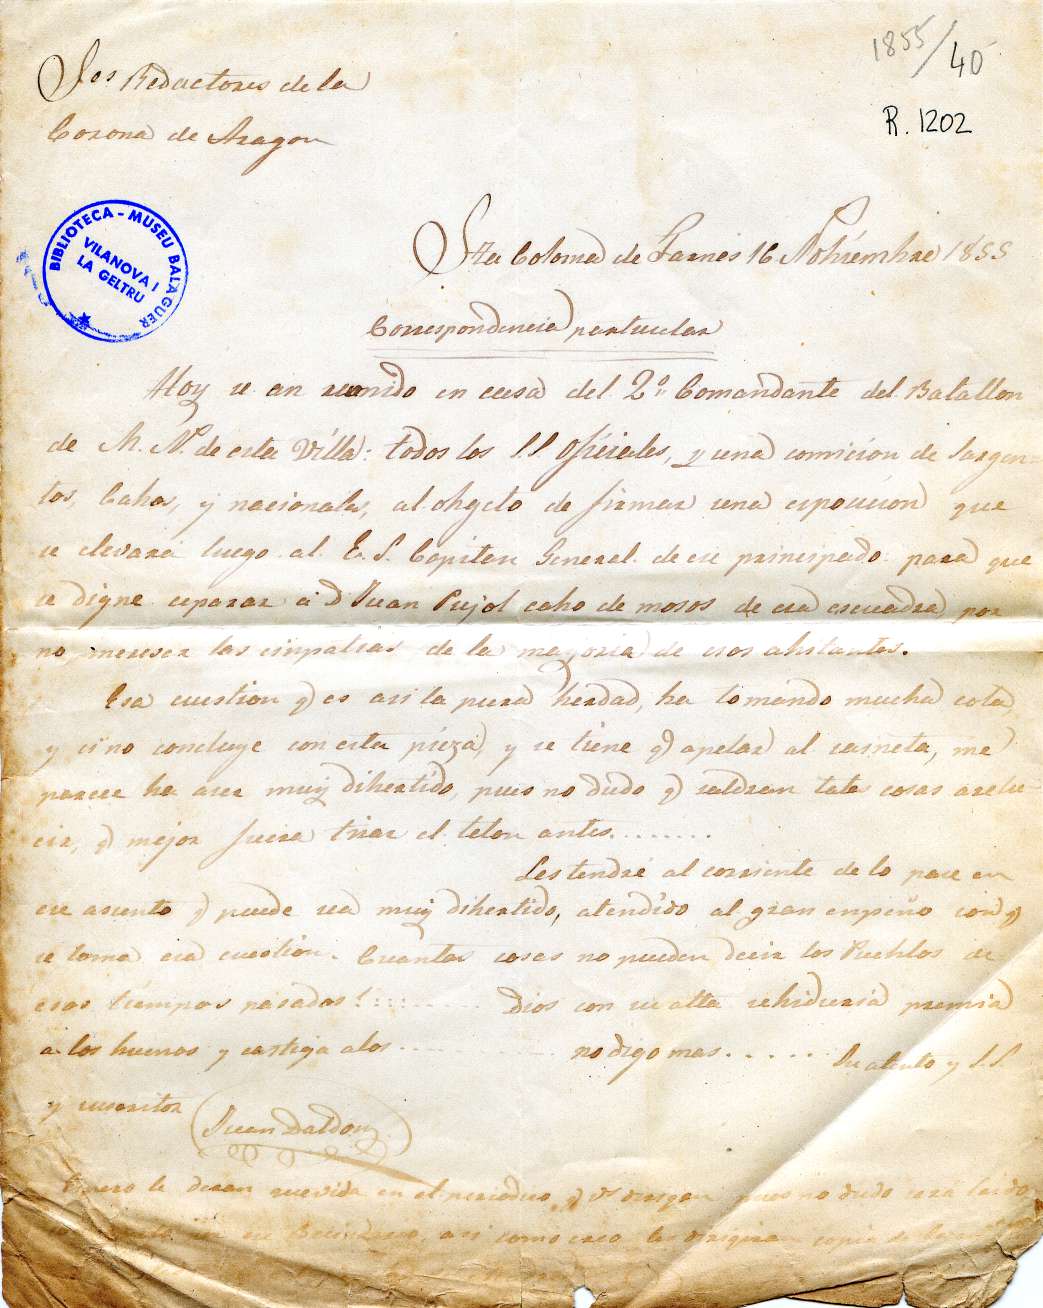 1855/40
R. 1202
Sos Redactores de la
Corona de Aragon
BIBLIOTECA - MUSEU BALAGUER
VILANOVA I
LA GELTRU
Sta Coloma de Farnes 16 Nohiembre 1855
Correspondencia particular
Hoy se an reunido en casa del 2º Comandante del Batallon
de M. N. de esta Villa: todos los SS Oficiales, y una comicion de Sargen-
tos, Cabos, y nacionales, al ohgeto de firmar una esposicion que
se elevara luego al E. S. Capitan General de ese principado para que
se digne separar á D Juan Pujol caho de mosos de esa escuadra por
no mereser las cinpatias de la mayoria de esos ahitantes.
Esa cuestion q es asi la pura herdad, ha tomando mucha cola,
y si no concluye con esta pieza, y se tiene q apelar al sasneta, me
parece ha aser muy dihertido, pues no dudo q saldran tales cosas areluc-
cir, q mejor fuera tirar el telon antes........
Les tendré al corriente de lo pase en
ese asunto q puede sea muy dihertido, atendido al gran enpeño con q
se toma esa cuestion. Cuantas cosas no pueden decir los Puehlos de
esos tiempos pasados! Dios con su alta sehiduria premia
a los huenos y castiga a los ............ no digo mas......
Su atento y S.S.
y suscritor
Juan Daldou
le deran cuevida en el periodico, q Vs dirigen pues no dudo sera leido
en ese asi como creo les dirigiran copia de la